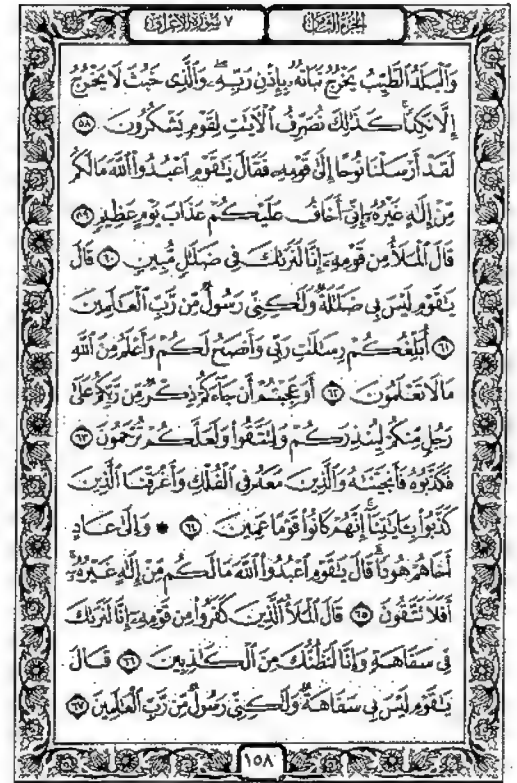 الجزء الثامن
٧ سورة الأعراف
وَٱلۡبَلَدُ ٱلطَّيِّبُ يَخۡرُجُ نَبَاتُهُۥ بِإِذۡنِ رَبِّهِۦۖ وَٱلَّذِى خَبُثَ لَا يَخۡرُجُ
إِلَّا نَكِدًاۚ كَذَٰلِكَ نُصَرِّفُ ٱلۡأَيَٰتِ لِقَوۡمٖ يَشۡكُرُونَ ٥٨
لَقَدۡ أَرۡسَلۡنَا نُوحًا إِلَىٰ قَوۡمِهِۦ فَقَالَ يَٰقَوۡمِ ٱعۡبُدُواْ ٱللَّهَ مَالَكُم
مِّنۡ إِلَٰهٍ غَيۡرُهُۥٓ إِنِّىٓ أَخَافُ عَلَيۡكُمۡ عَذَابَ يَوۡمٍ عَظِيمٖ ٥٩
قَالَ ٱلۡمَلَأُ مِن قَوۡمِهِۦٓ إِنَّا لَنَرَىٰكَ فِى ضَلَٰلٖ مُّبِينٖ ٦٠ قَالَ
يَٰقَوۡمِ لَيۡسَ بِى ضَلَٰلَةٞ وَلَٰكِنِّى رَسُولٞ مِّن رَّبِّ ٱلۡعَٰلَمِينَ
٦١ أُبَلِّغُكُمۡ رِسَٰلَٰتِ رَبِّى وَأَنصَحُ لَكُمۡ وَأَعۡلَمُ مِنَ ٱللَّهِ
مَالَا تَعۡلَمُونَ ٦٢ أَوَعَجِبۡتُمۡ أَن جَآءَكُمۡ ذِكۡرٞ مِّن رَّبِّكُمۡ عَلَىٰ
رَجُلٖ مِّنكُمۡ لِيُنذِرَكُمۡ وَلِتَتَّقُواْ وَلَعَلَّكُمۡ تُرۡحَمُونَ ٦٣
فَكَذَّبُوهُ فَأَنجَيۡنَٰهُ وَٱلَّذِينَ مَعَهُۥ فِى ٱلۡفُلۡكِ وَأَغۡرَقۡنَا ٱلَّذِينَ
كَذَّبُواْ بِـَٔايَٰتِنَآۚ إِنَّهُمۡ كَانُواْ قَوۡمًا عَمِينَ ٦٤ ۞ وَإِلَىٰ عَادٍ
أَخَاهُمۡ هُودٗاۚ قَالَ يَٰقَوۡمِ ٱعۡبُدُواْ ٱللَّهَ مَالَكُم مِّنۡ إِلَٰهٍ غَيۡرُهُۥٓۚ
أَفَلَا تَتَّقُونَ ٦٥ قَالَ ٱلۡمَلَأُ ٱلَّذِينَ كَفَرُواْ مِن قَوۡمِهِۦٓ إِنَّا لَنَرَىٰكَ
فِى سَفَاهَةٖ وَإِنَّا لَنَظُنُّكَ مِنَ ٱلۡكَٰذِبِينَ ٦٦ قَالَ
يَٰقَوۡمِ لَيۡسَ بِى سَفَاهَةٞ وَلَٰكِنِّى رَسُولٞ مِّن رَّبِّ ٱلۡعَٰلَمِينَ ٦٧
١٥٨